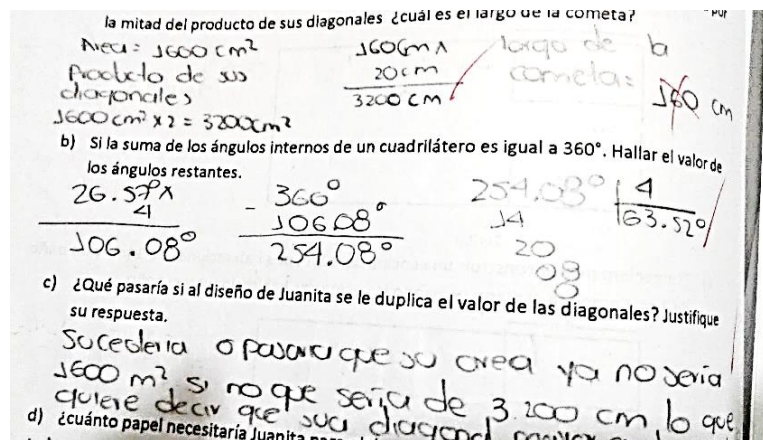 la mitad del producto de sus diagonales ¿cuál es el largo de la cometa?
Area: 1600 cm²
Producto de sus
diagonales
1600 cm² x 2 = 3200cm²
160cm x
20cm
3200 cm
largo de la
cometa:
160 cm
b) Si la suma de los ángulos internos de un cuadrilátero es igual a 360°. Hallar el valor de
los ángulos restantes.
26.57° x
4
106.08°
- 360°
106.08°
254.08°
254.08° | 4
14 63.52°
20
08
0
c) ¿Qué pasaría si al diseño de Juanita se le duplica el valor de las diagonales? Justifique
su respuesta.
Sucederia o pasara que su area ya no seria
1600 m² si no que seria de 3.200 cm, lo que
quiere decir que sua diagonal
d) ¿cuánto papel necesitaría Juanita